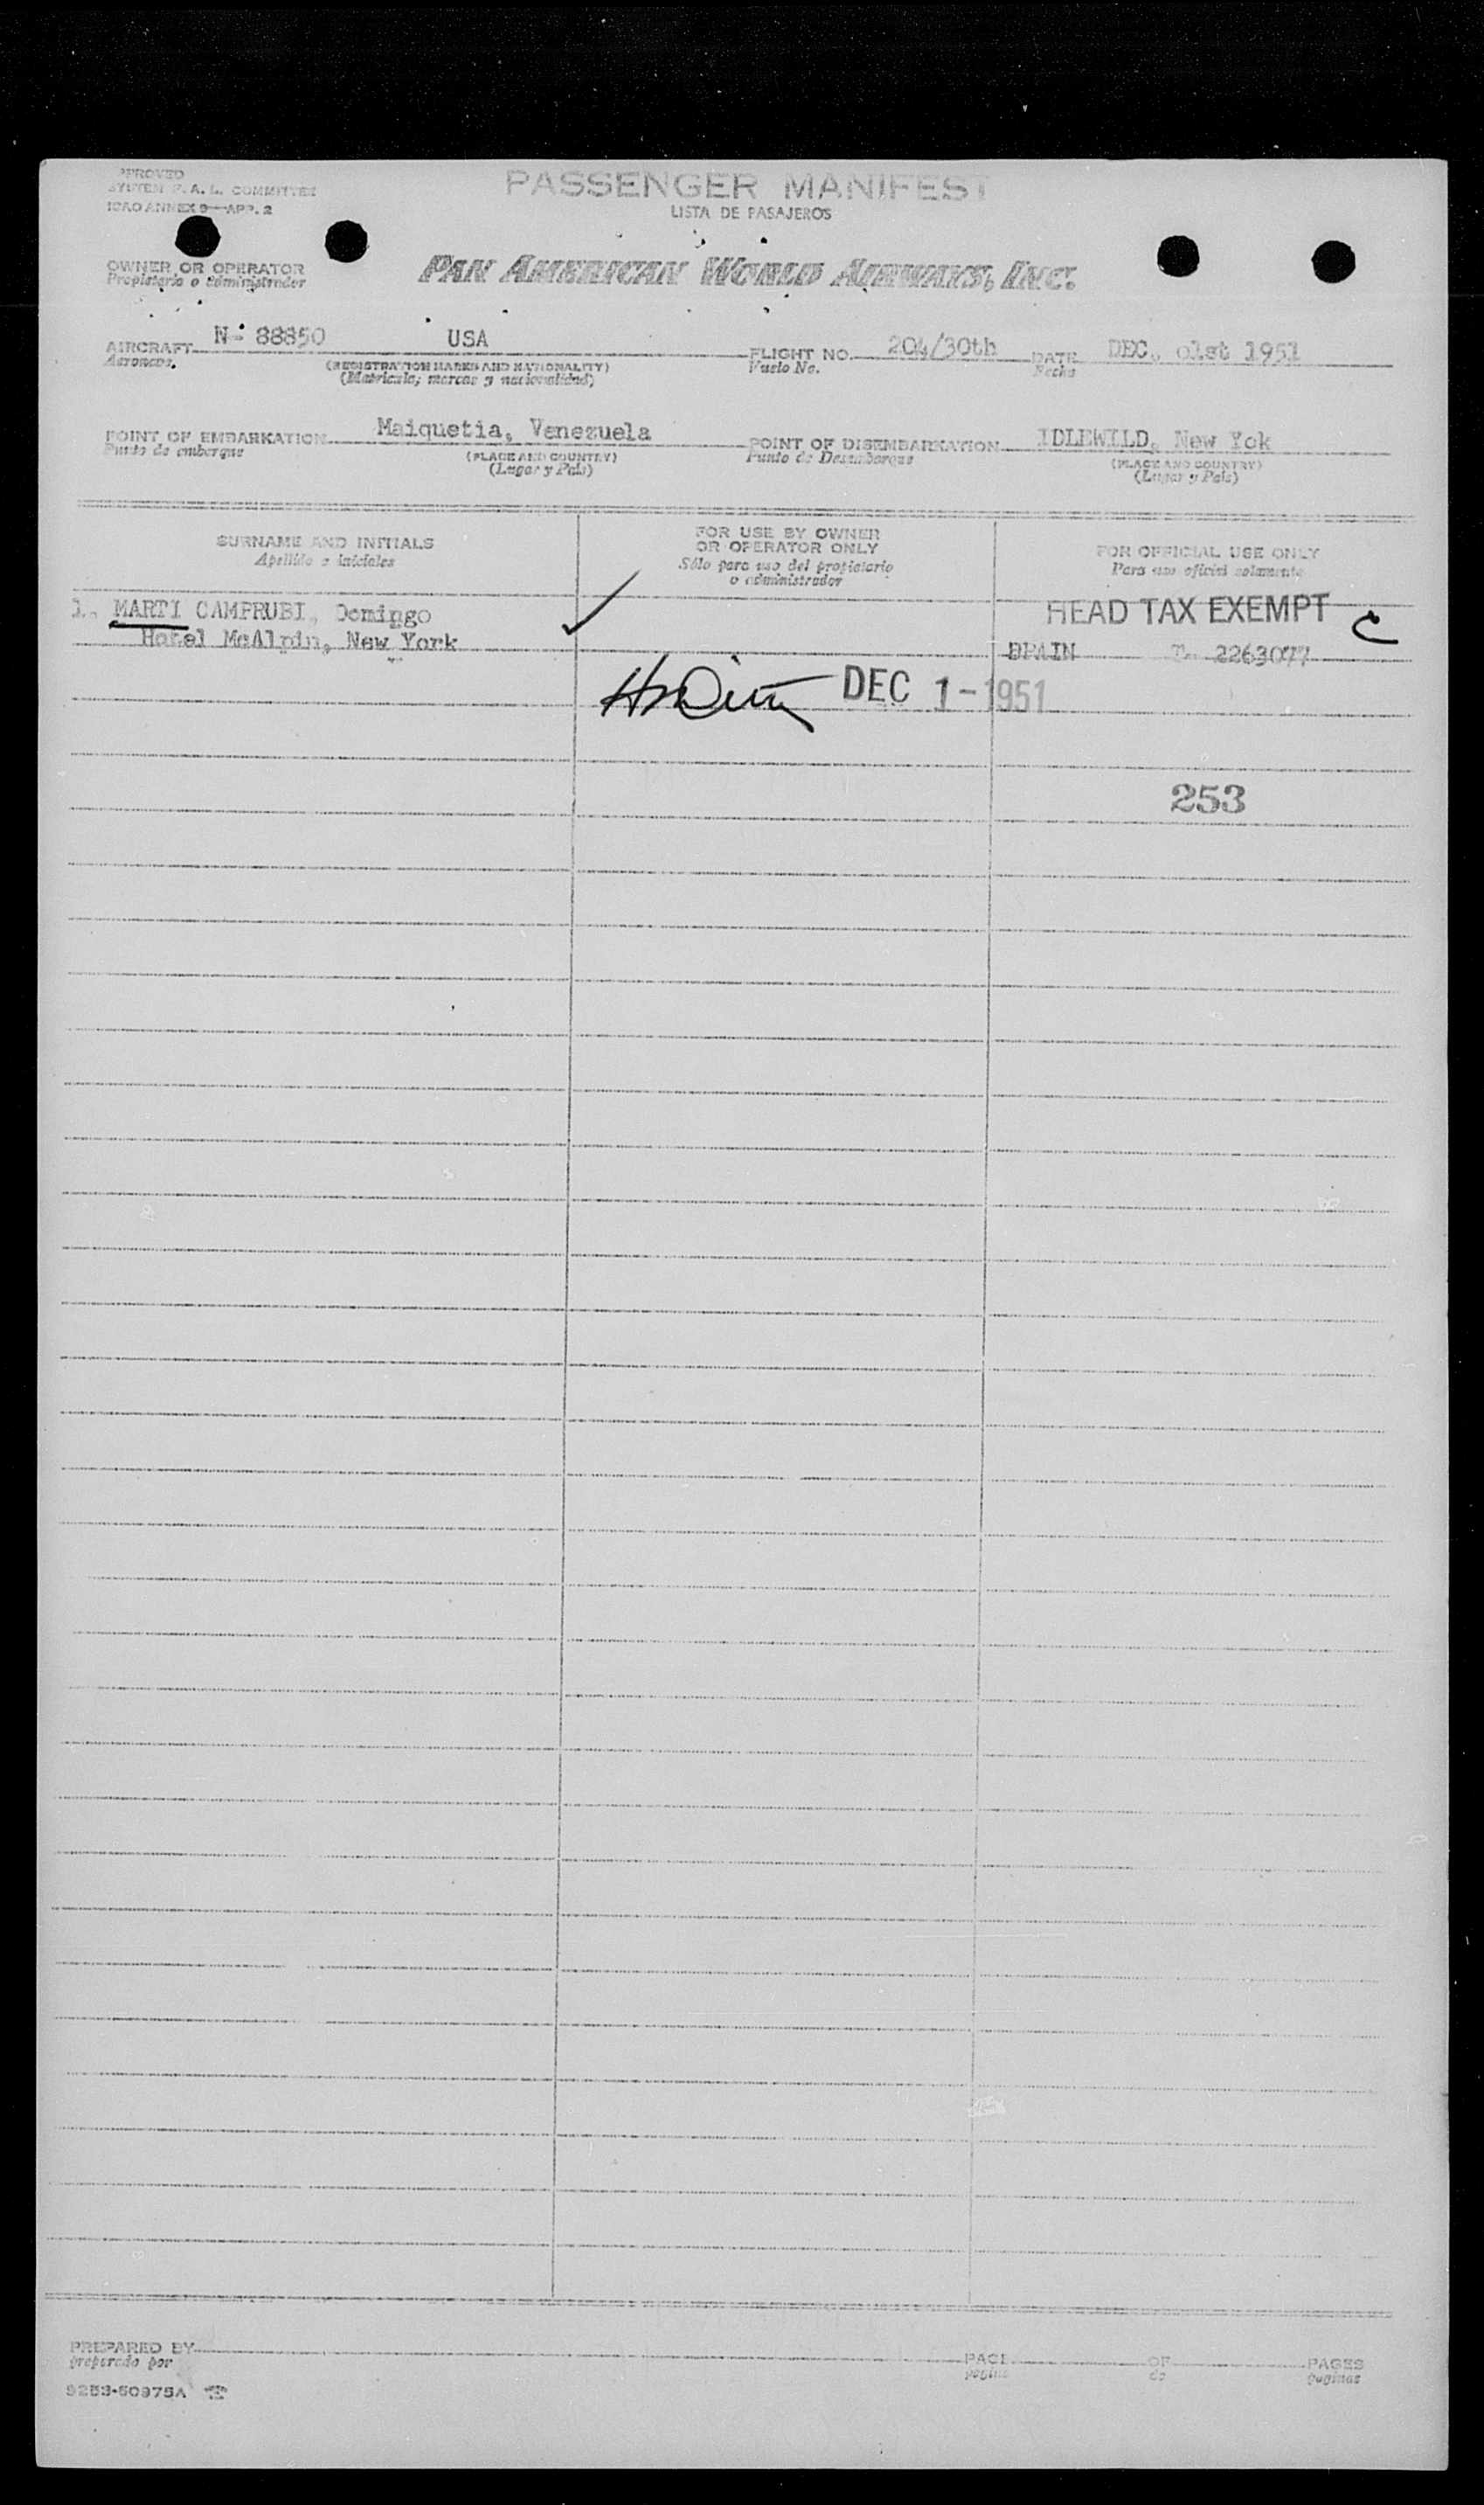 APPROVED
SYSTEM F.A.L. COMMITTEE
ICAO ANNEX 9—APP. 2
PASSENGER MANIFEST
LISTA DE PASAJEROS
OWNER OR OPERATOR
Propietario o administrador
PAN AMERICAN WORLD AIRWAYS, INC.
AIRCRAFT N- 88850 USA FLIGHT NO. 204/30th DATE DEC. 01st 1951
Aeronave. (REGISTRATION MARKS AND NATIONALITY) Vuelo No. Fecha
(Matricula; marcas y nacionalidad)
POINT OF EMBARKATION Maiquetia, Venezuela POINT OF DISEMBARKATION IDLEWILD, New Yok
Punto de embarque (PLACE AND COUNTRY) Punto de Desembarque (PLACE AND COUNTRY)
(Lugar y Pais) (Lugar y Pais)
SURNAME AND INITIALS
Apellido e iniciales
FOR USE BY OWNER
OR OPERATOR ONLY
Sólo para uso del propietario
o administrador
FOR OFFICIAL USE ONLY
Para uso oficial solamente
1. MARTI CAMPRUBI, Domingo HEAD TAX EXEMPT C
Hotel McAlpin, New York SPAIN T- 2263077
DEC 1-1951
253
PREPARED BY PAGE OF PAGES
preparado por pagina de paginas
9253-50975A